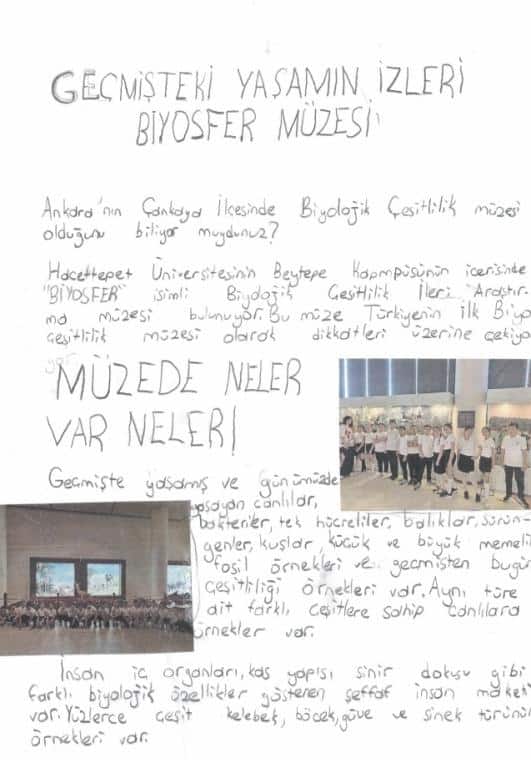 GEÇMİŞTEKİ YAŞAMIN İZLERİ
BİYOSFER MÜZESİ
Ankara'nın Çankaya İlcesinde Biyoloğik Çeşitlilik müzesi
olduğunu biliyor muydunuz?
Hacettepet Üniversitesinin Beytepe Kapmpüsünün içerisinde
"BİYOSFER" isimli Biyoloğik Çeşitlilik İleri Araştır-
ma müzesi bulunuyor. Bu müze Türkiyenin İlk Biyo
çeşitlilik müzesi olarak dikkatleri üzerine çekiyo
yor.
MÜZEDE NELER
VAR NELER!
Geçmişte yaşamış ve günümüzde
yaşayan canlılar,
bakteriler, tek hücreliler, balıklar, sürün-
genler, kuşlar, küçük ve büyük memeli
fosil örnekleri ve geçmişten bugün
çeşitliliği örnekleri var. Aynı türe
ait farklı çeşitlere sahip canlılara
örnekler var.
İnsan iç organları, kas yapısı sinir dokusu gibi
farklı biyoloğik özellikler gösteren şeffaf insan maket
var. Yüzlerce çeşit kelebek, böcek, güve ve sinek türünün
örnekleri var.